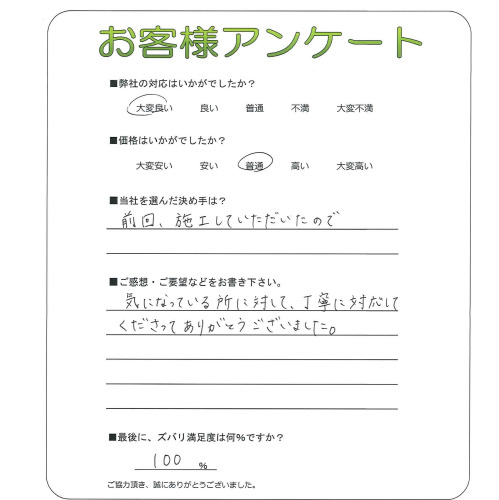 お客様アンケート
■弊社の対応はいかがでしたか？
大変良い 良い 普通 不満 大変不満
■価格はいかがでしたか？
大変安い 安い 普通 高い 大変高い
■当社を選んだ決め手は？
前回、施工していただいたので
■ご感想・ご要望などをお書き下さい。
気になっている所に対して、丁寧に対応して
くださってありがとうございました。
■最後に、ズバリ満足度は何％ですか？
100 ％
ご協力頂き、誠にありがとうございました。